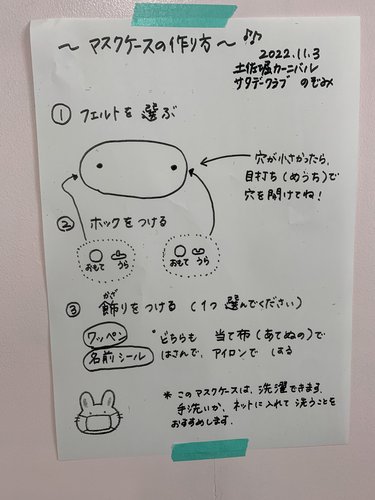 ～ マスクケースの作り方 ～ ♪♪
2022.11.3
土佐堀カーニバル
サタデークラブ のぞみ
① フェルトを 選ぶ
穴が小さかったら、
目打ち(めうち)で
穴を開けてね！
② ホックをつける
おもて うら おもて うら
③ 飾りをつける (1つ 選んでください)
かざ
ワッペン
名前シール
どちらも 当て布(あてぬの)で
はさんで、アイロンで はる
* このマスクケースは、洗濯できます。
手洗いか、ネットに入れて 洗うことを
おすすめします。